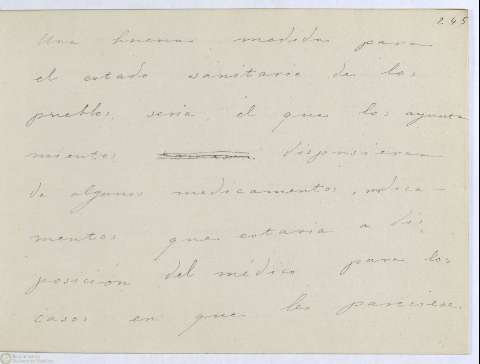 245
Una buena medida para
el estado sanitario de los
pueblos, seria, el que los ayunta
mientos dispusieran
de algunos medicamentos, medica-
mentos que estaria a dis
posición del médico para los
casos en que les pareciese.